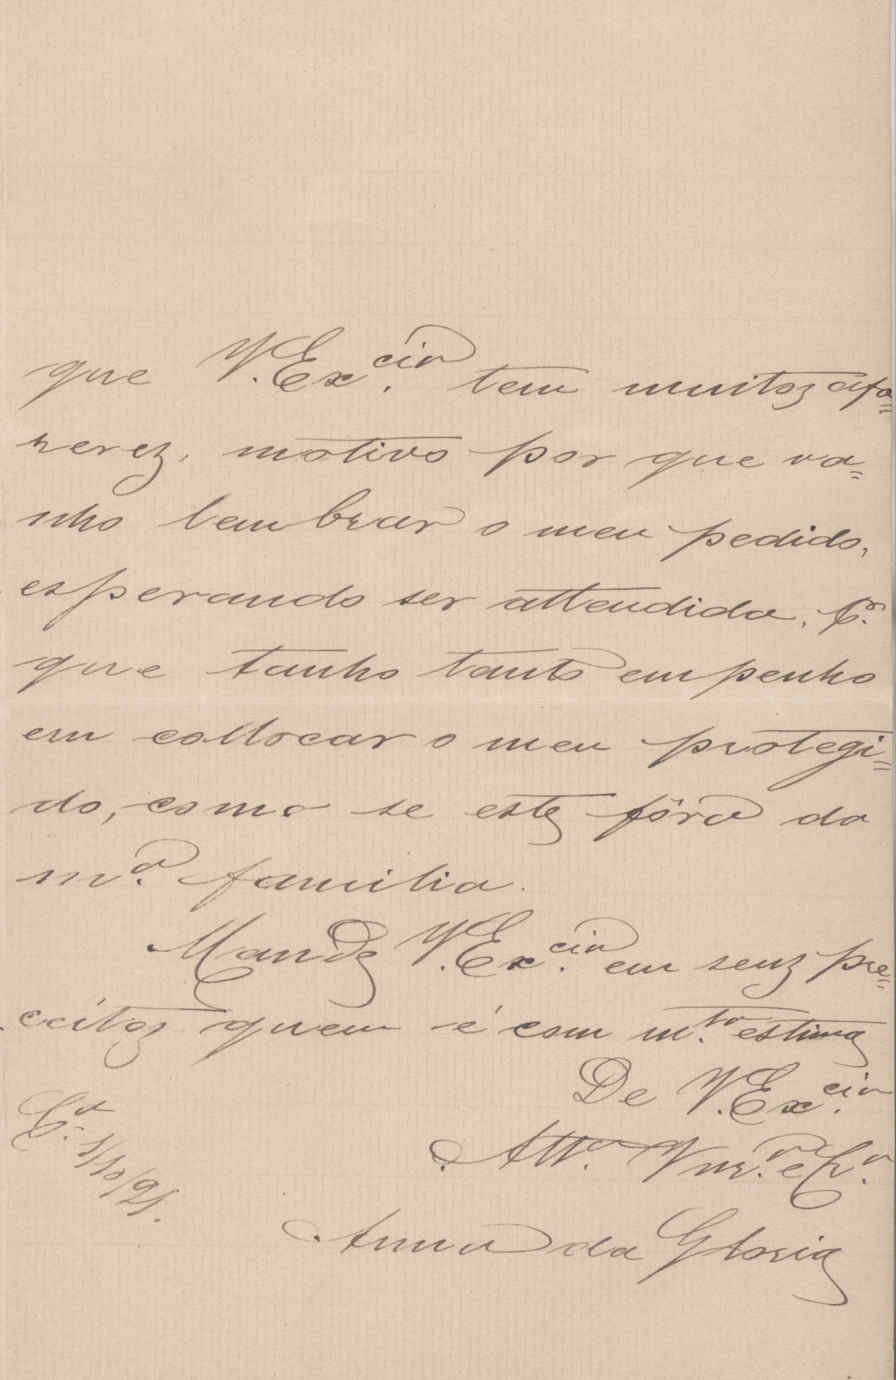 que V. Ex.cia tem muitos afa=
zerez, motivo por que va=
nho lembrar o meu pedido,
esperando ser attendida,
que tanho tanto empenho
em collocar o meu protegi=
do, como se este fôra da
m.a familia.
Mande V. Ex.cia em seus pre=
ceitos quem é com m.ta estima
De V. Ex.cia
Att.a Vnr.a e Cr.a
Anna da Gloria
C.a 1/10/91.